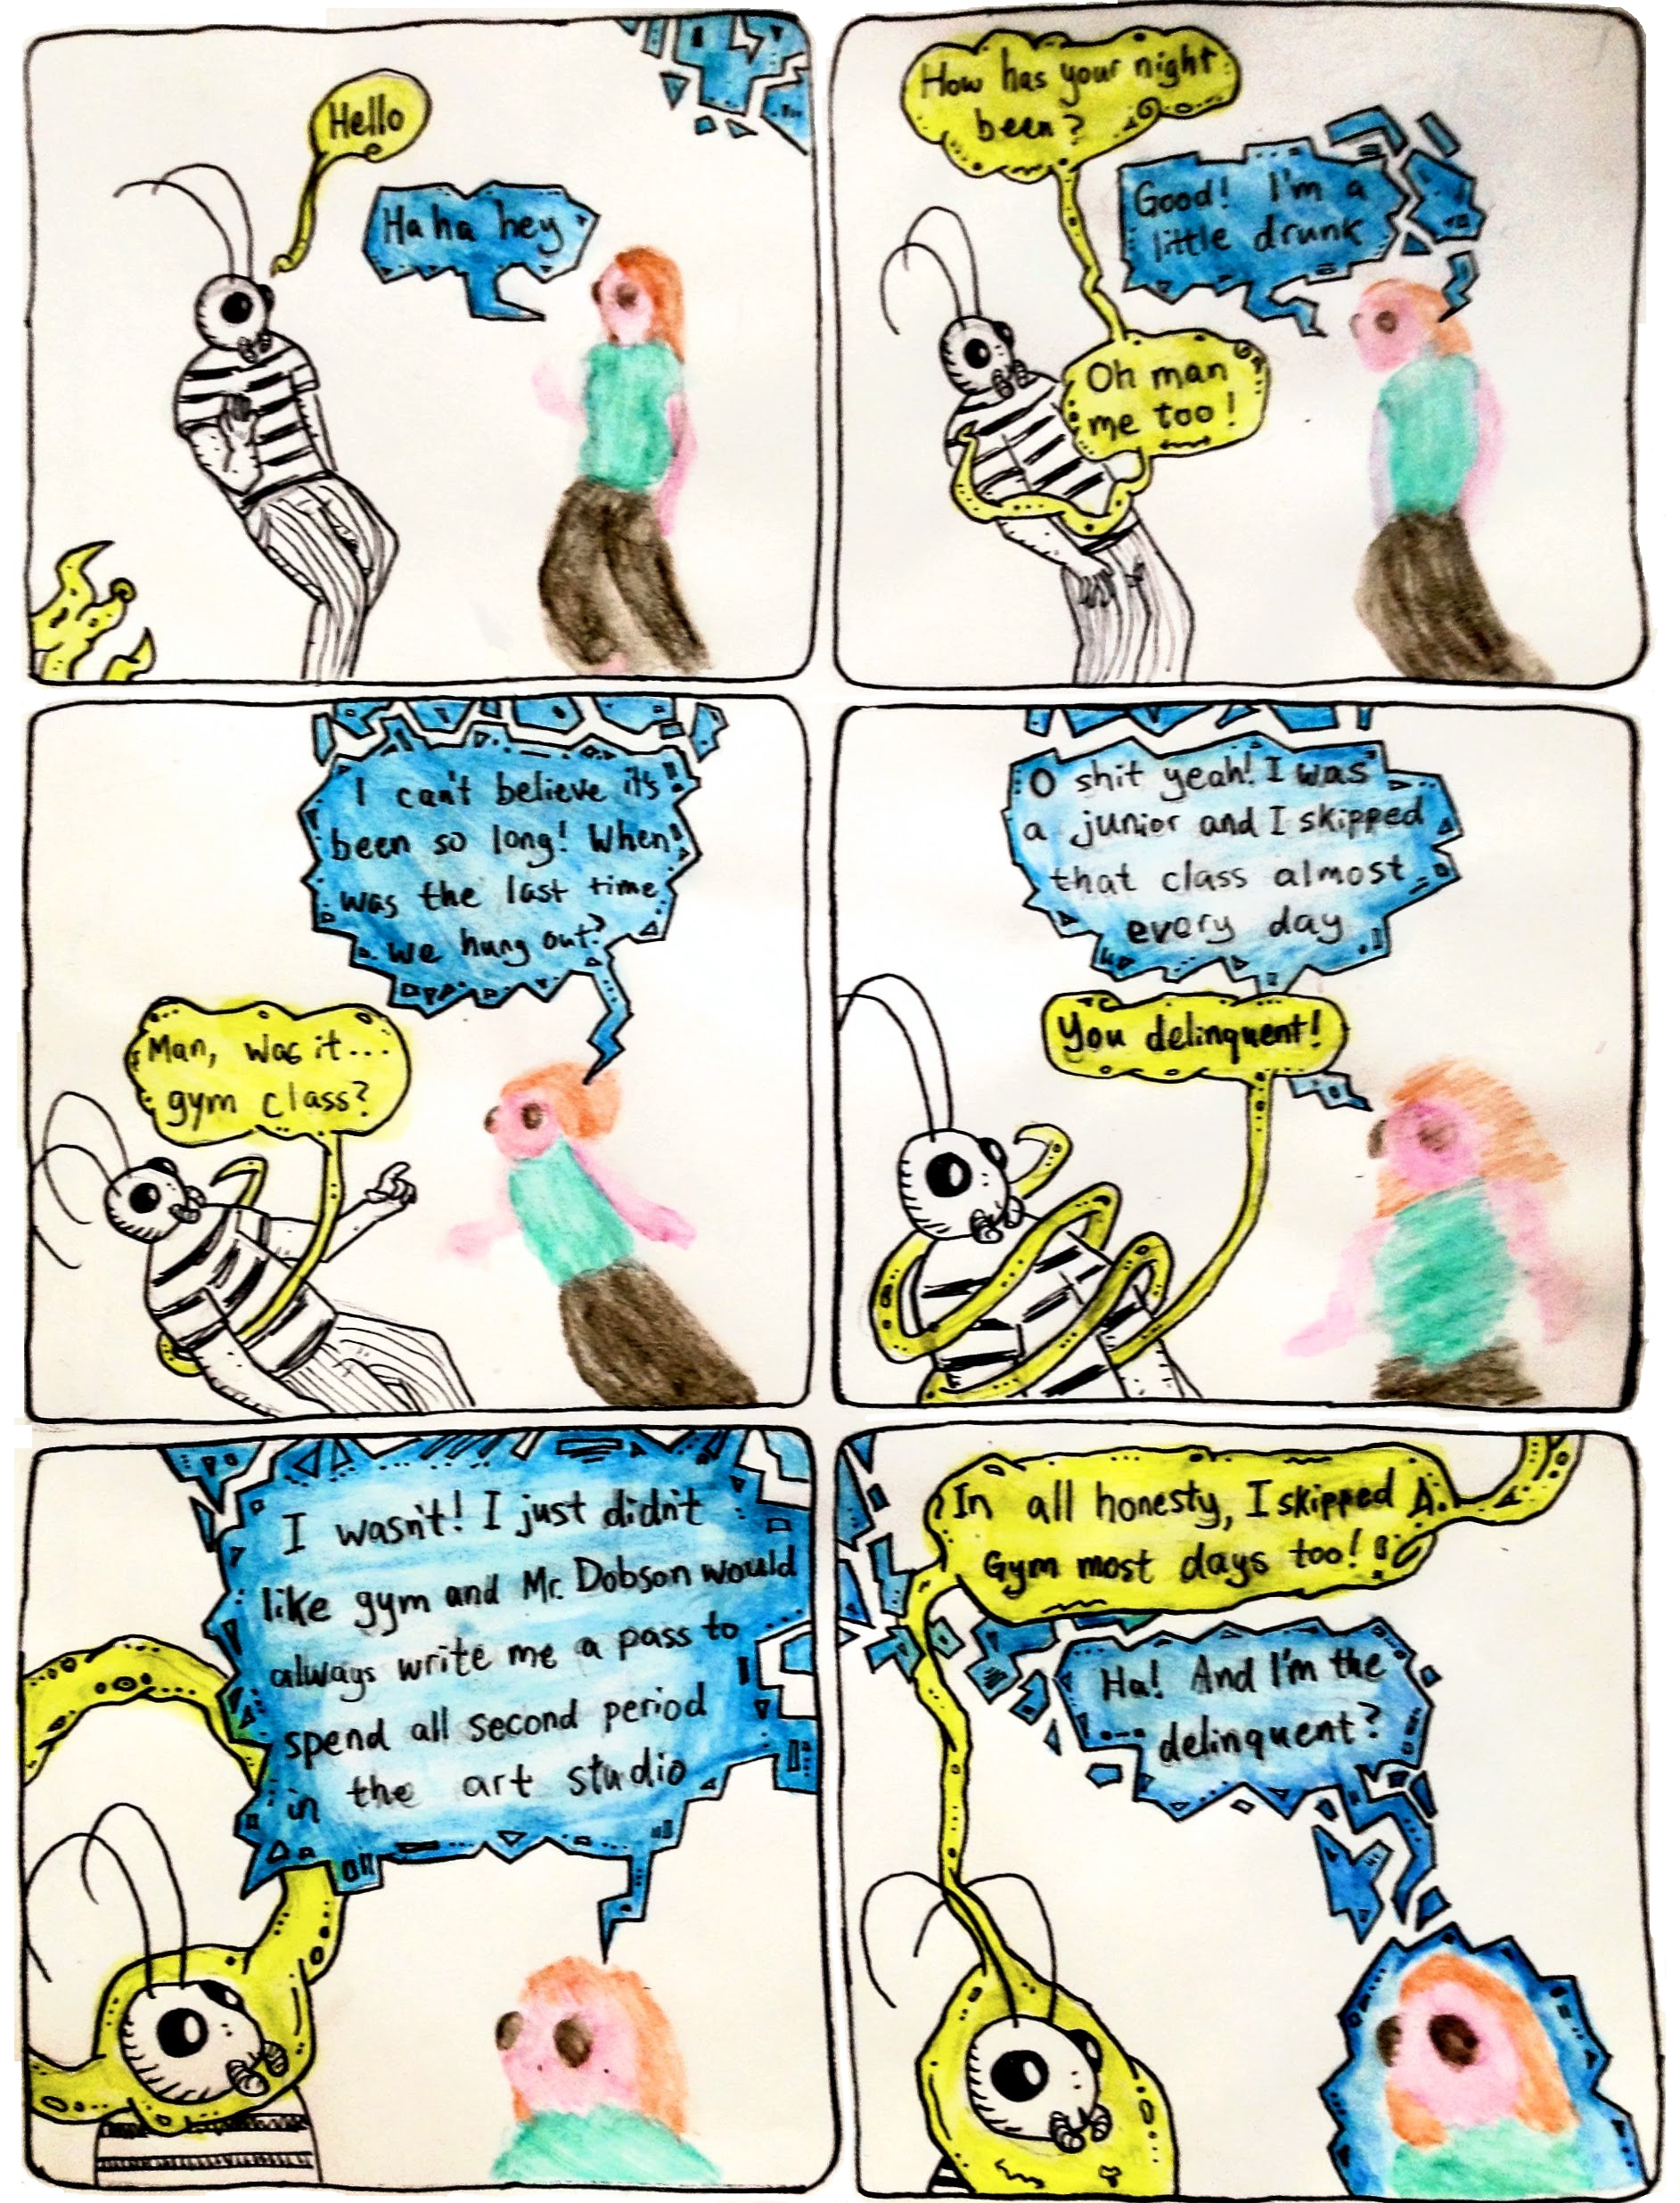 Hello
Ha ha hey
How has your night
been?
Good! I'm a
little drunk
Oh man
me too!
I can't believe it's
been so long! When
was the last time
we hung out?
Man, was it...
gym class?
O shit yeah! I was
a junior and I skipped
that class almost
every day
You delinquent!
I wasn't! I just didn't
like gym and Mr. Dobson would
always write me a pass to
spend all second period
in the art studio
In all honesty, I skipped
Gym most days too!
Ha! And I'm the
delinquent?